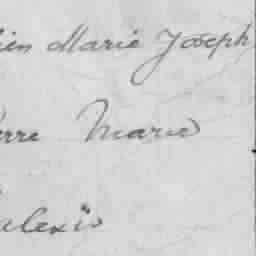 ien Marie Joseph
erre Marie
alexis